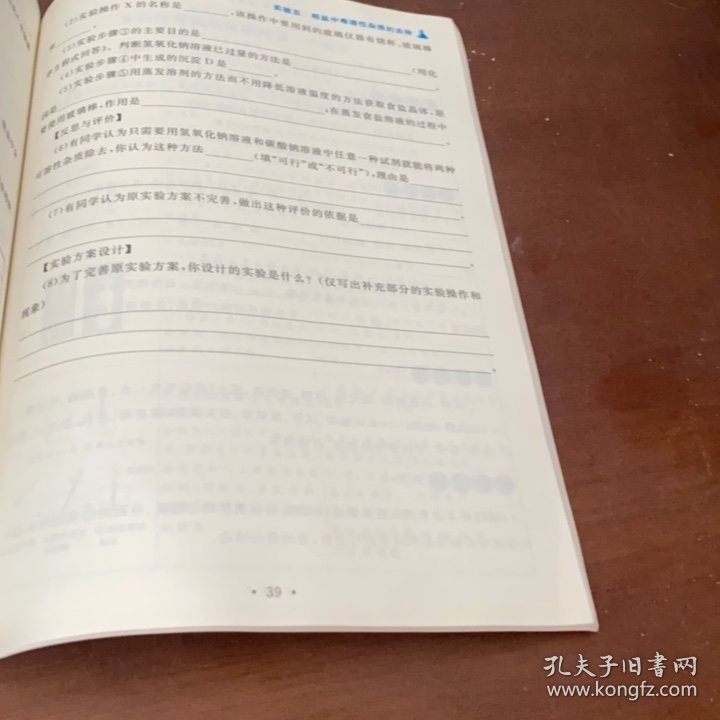 实验五 粗盐中难溶性杂质的去除
(2)实验操作 X 的名称是________,该操作中要用到的玻璃仪器有烧杯、玻璃棒
(3)实验步骤③的主要目的是________(用化
学方程式回答)。判断氢氧化钠溶液已过量的方法是________。
(4)实验步骤④中生成的沉淀 D 是________。
(5)实验步骤⑤用蒸发溶剂的方法而不用降低溶液温度的方法获取食盐晶体,原
因是________,在蒸发食盐溶液的过程中
要使用玻璃棒,作用是________。
【反思与评价】
(6)有同学认为只需要用氢氧化钠溶液和碳酸钠溶液中任意一种试剂就能将两种
可溶性杂质除去,你认为这种方法________(填“可行”或“不可行”),理由是________
________。
(7)有同学认为原实验方案不完善,做出这种评价的依据是________
________。
【实验方案设计】
(8)为了完善原实验方案,你设计的实验是什么?(仅写出补充部分的实验操作和
现象)
• 39 •
孔夫子旧书网
www.kongfz.com